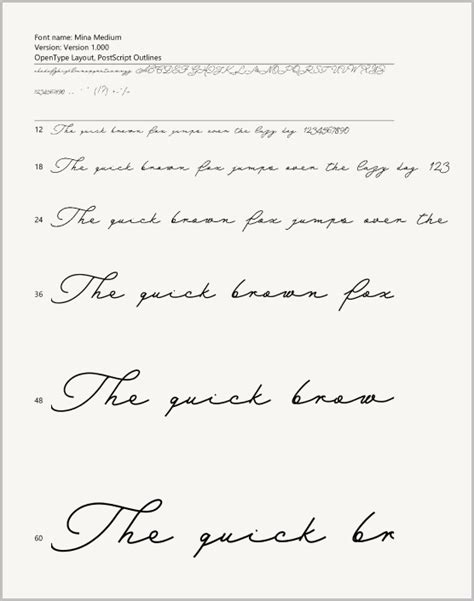 Font name: Mina Medium
Version: Version 1.000
OpenType Layout, PostScript Outlines
abcdefghijklmnopqrstuvwxyz ABCDEFGHIJKLMNOPQRSTUVWXYZ
1234567890
12 The quick brown fox jumps over the lazy dog 1234567890
18 The quick brown fox jumps over the lazy dog 123
24 The quick brown fox jumps over the
36 The quick brown fox
48 The quick brow
60 The quick br